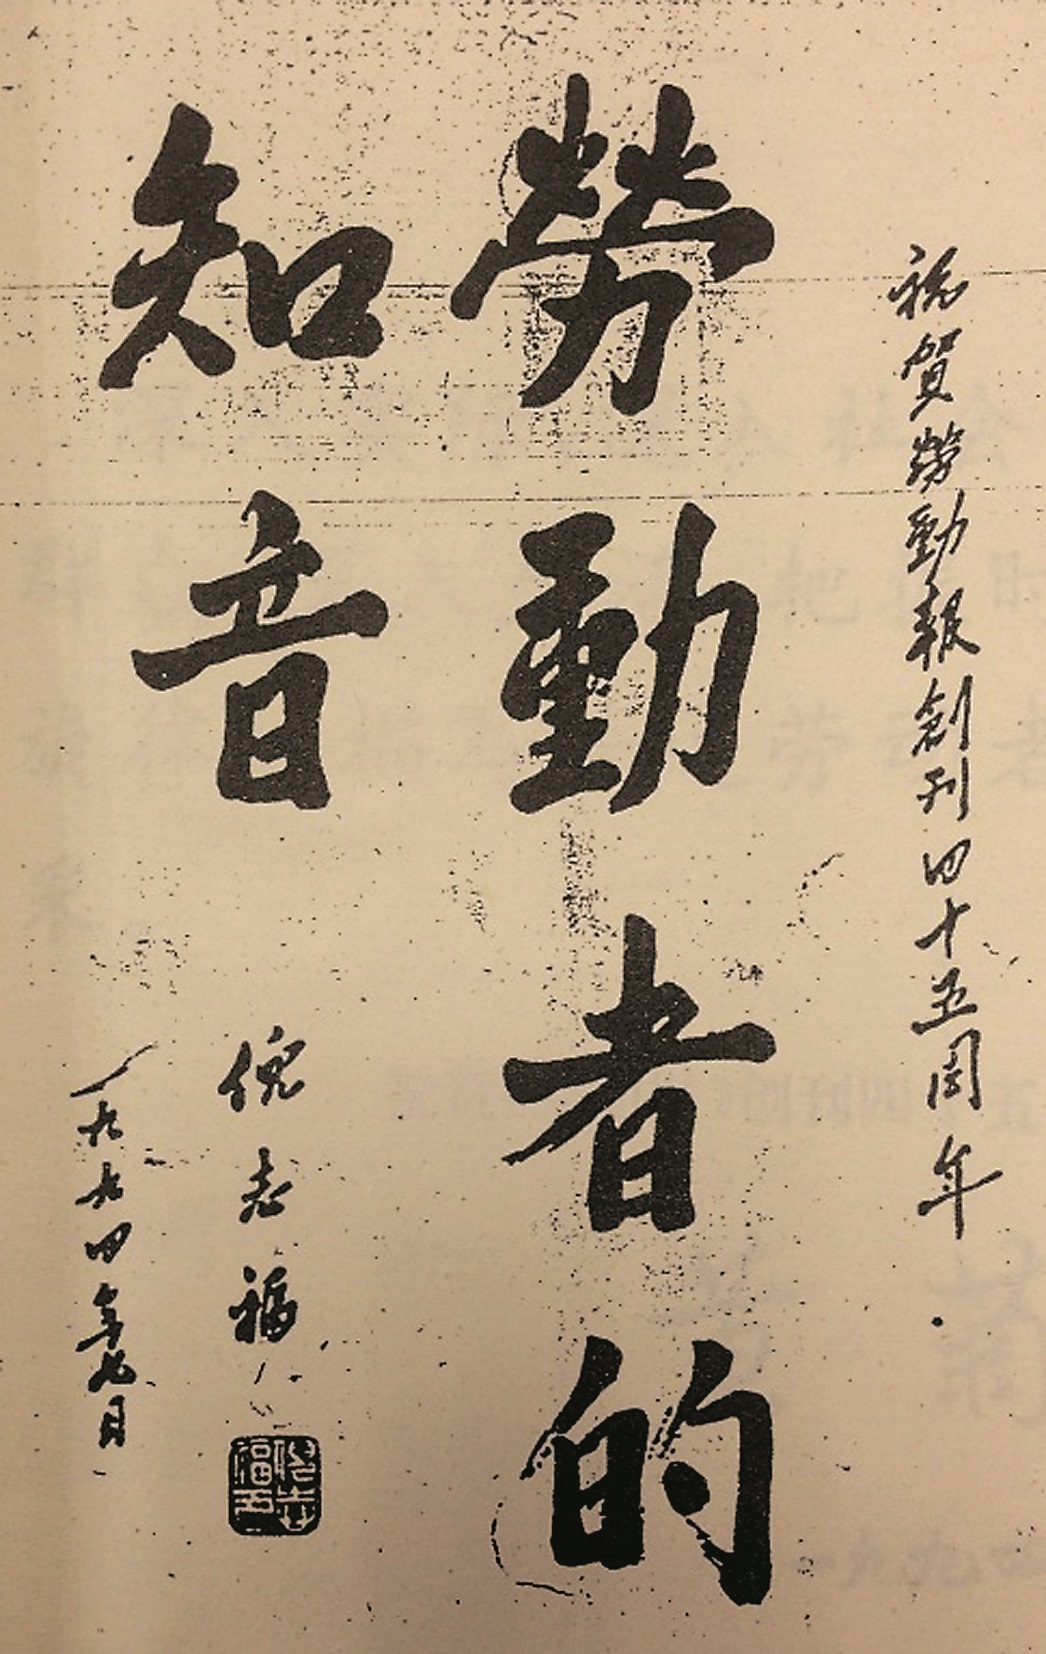 祝賀勞動報創刊四十五周年
勞動者的
知音
倪志福
一九九四年七月